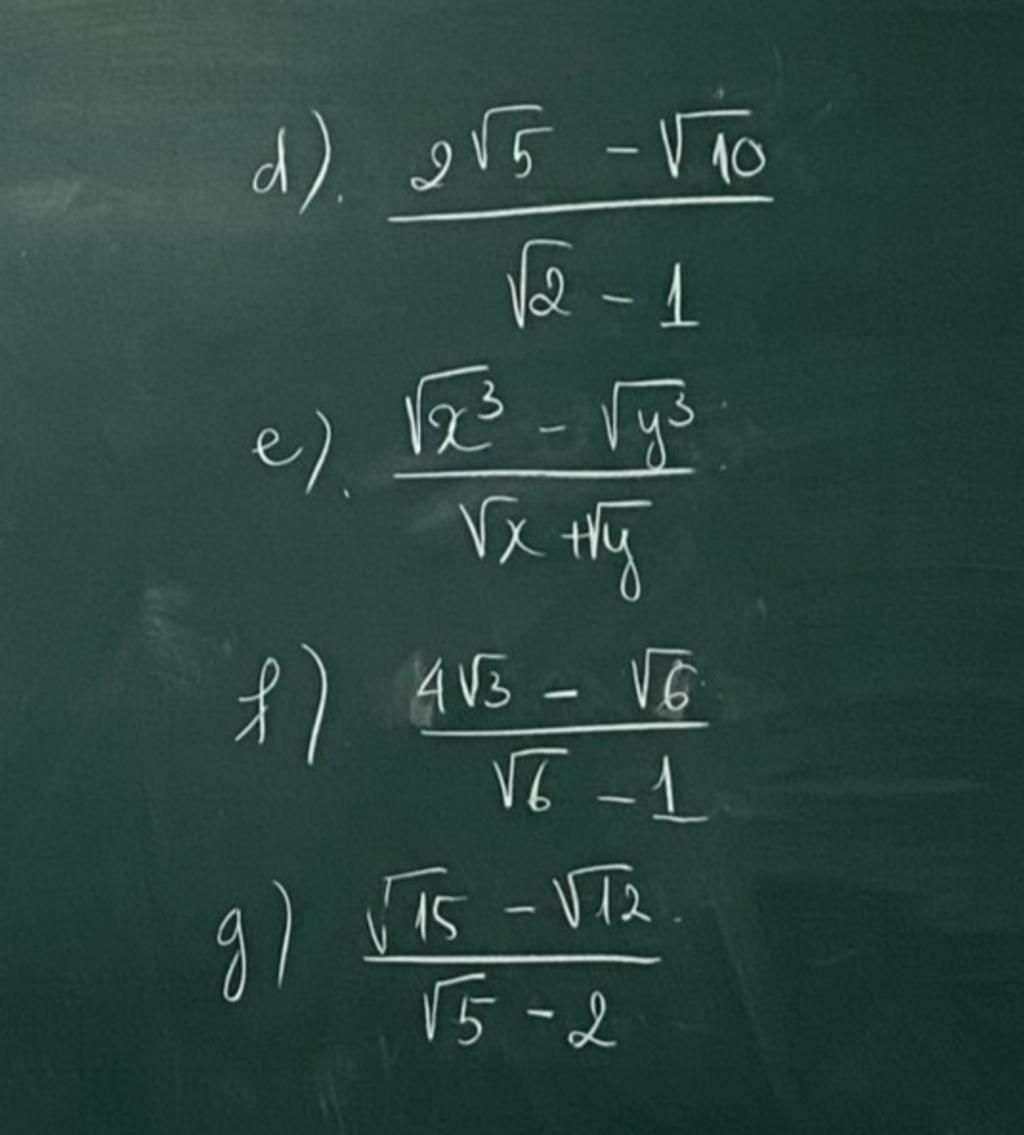 d). (2√5 - √10)/(√2 - 1)
e). (√x³ - √y³)/(√x + √y)
f) (4√3 - √6)/(√6 - 1)
g) (√15 - √12)/(√5 - 2)